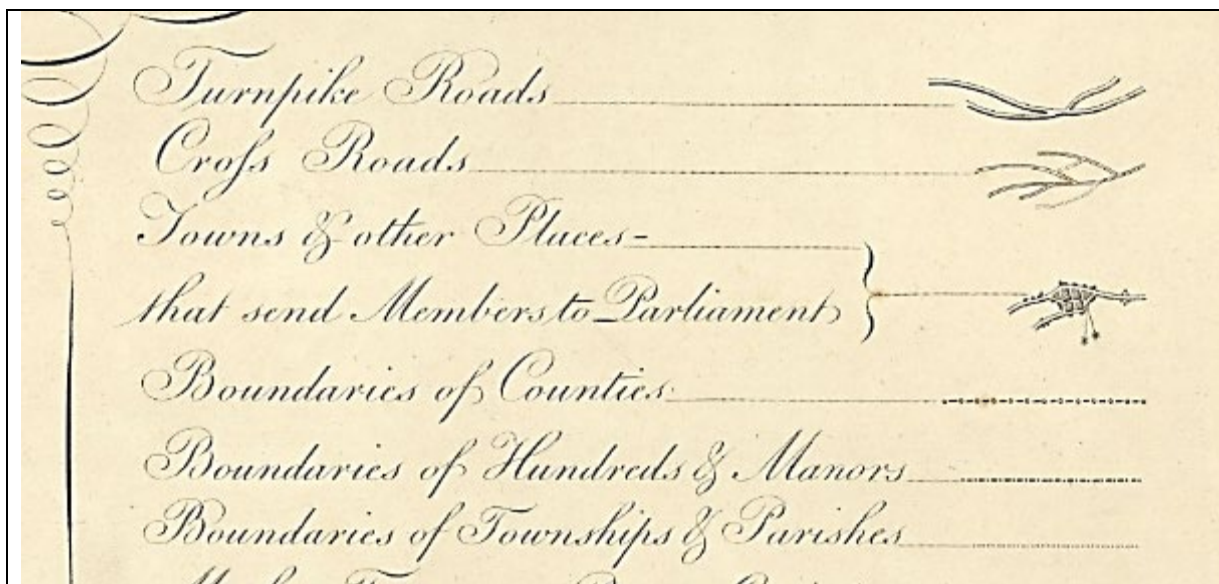 Turnpike Roads
Croſs Roads
Towns & other Places-
that send Members to Parliament
Boundaries of Counties
Boundaries of Hundreds & Manors
Boundaries of Townships & Parishes